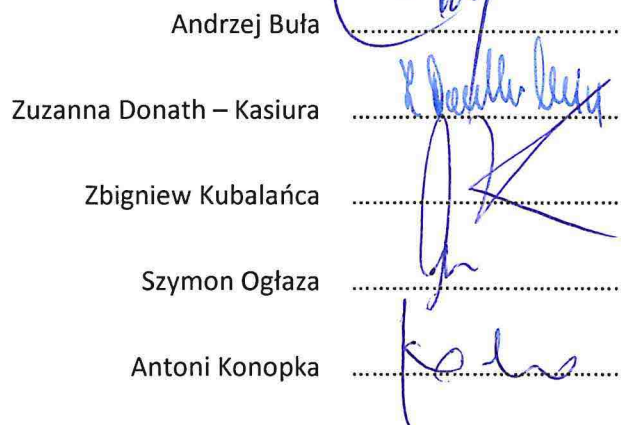 Andrzej Buła ........................................
Zuzanna Donath – Kasiura ........................................
Zbigniew Kubalańca ........................................
Szymon Ogłaza ........................................
Antoni Konopka ........................................